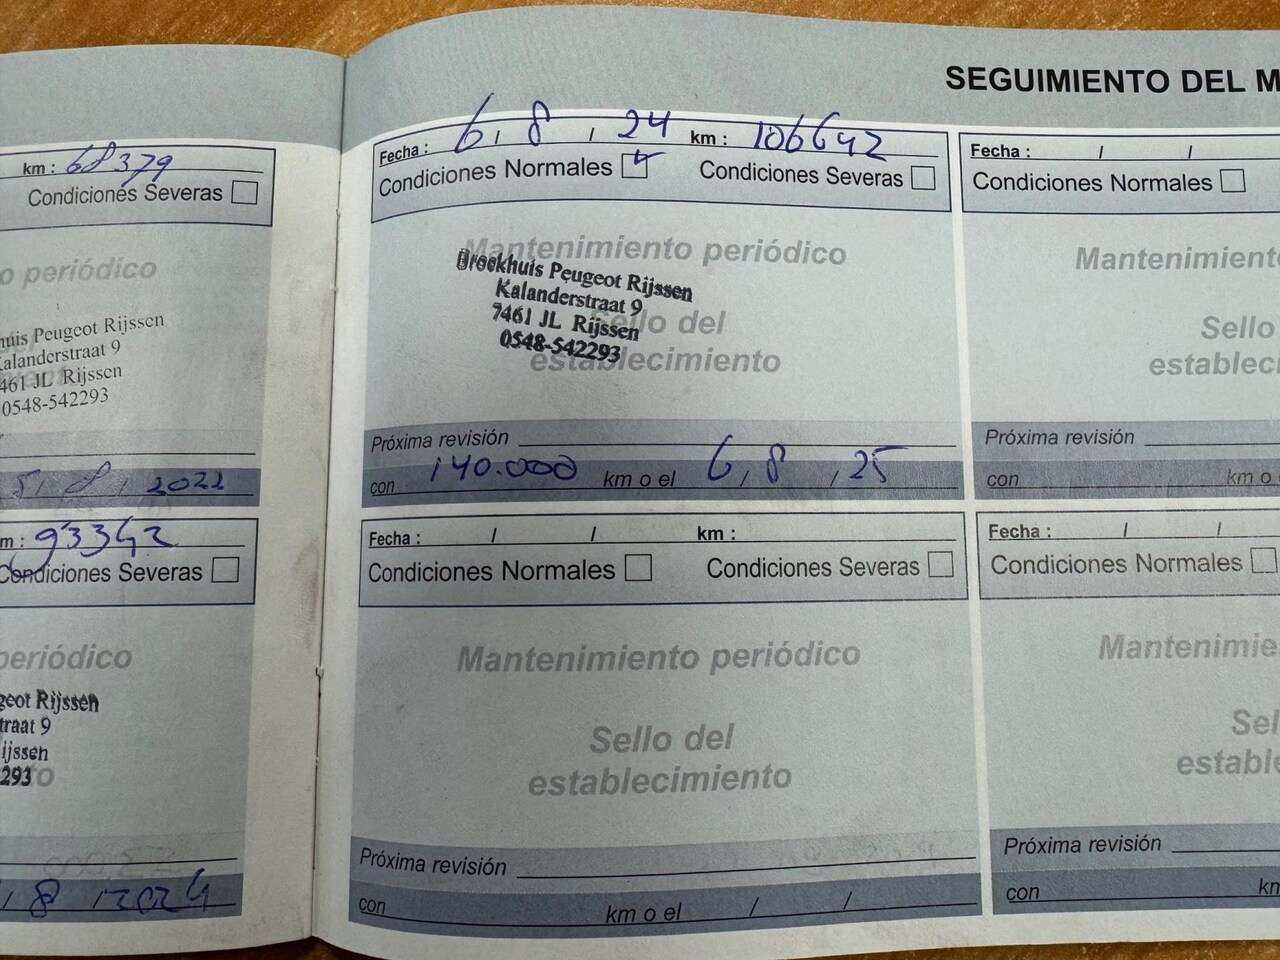 SEGUIMIENTO DEL M
km : 68379
Condiciones Severas
o periódico
huis Peugeot Rijssen
Kalanderstraat 9
7461 JL Rijssen
0548-542293
5 / 8 / 2022
m : 93342
Condiciones Severas
periódico
geot Rijssen
traat 9
ijssen
293
/ 8 / 2024
Fecha : 6 / 8 / 24 km : 106642
Condiciones Normales Condiciones Severas
Mantenimiento periódico
Broekhuis Peugeot Rijssen
Kalanderstraat 9
7461 JL Rijssen
0548-542293
Sello del
establecimiento
Próxima revisión
con 140.000 km o el 6 / 8 / 25
Fecha : / / km :
Condiciones Normales Condiciones Severas
Mantenimiento periódico
Sello del
establecimiento
Próxima revisión
con km o el / /
Fecha : / /
Condiciones Normales
Mantenimient
Sello
estableci
Próxima revisión
con km o
Fecha : / /
Condiciones Normales
Mantenimie
Sel
estable
Próxima revisión
con km